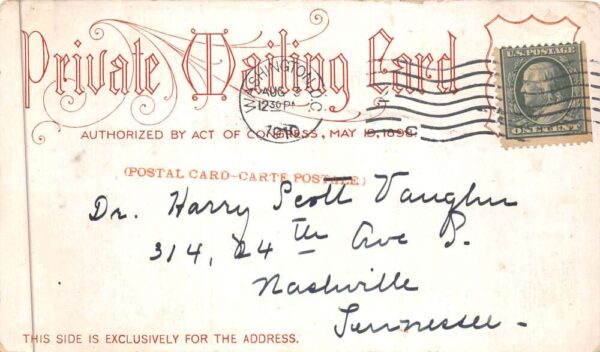 Private Mailing Card
WASHINGTON, D.C.
AUG
12 30 PM
1910
U.S. POSTAGE
ONE CENT
AUTHORIZED BY ACT OF CONGRESS, MAY 19, 1898.
(POSTAL CARD-CARTE POSTALE)
Dr. Harry Scott Vaughn
314, 24th Ave S.
Nashville
Tennessee -
THIS SIDE IS EXCLUSIVELY FOR THE ADDRESS.